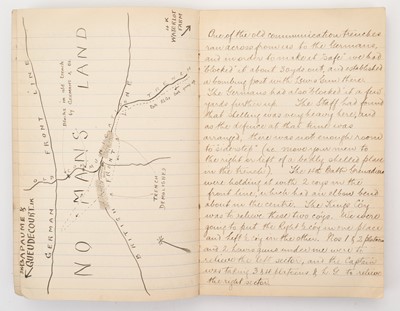 NO MANS LAND
GERMAN FRONT LINE
BRITISH FRONT LINE
TRENCH
DEMOLISHED
To BAPAUME &
GUEUDECOURT. IM
One of the old communication trenches
ran across from us to the Germans,
and in order to make it "safe" we had
blocked it about 30 yds out, and established
a bombing post with Lewis Gun there.
The Germans had also blocked it a few
yards further up. The Staff had found
that shelling was very heavy here, and
as the defence at that time was
arranged, there was not enough room
to "sidestep" (ie move your men to
the right or left of a badly shelled place
in the trench). The Batt Canadians
were holding it with 2 coys in the
front line, which has an elbow bend
about in the centre. The Kings Coy
was to relieve those two coys. We were
going to put the Right ½ coy in one place
and Left ½ coy in the other. Nos 1 & 2 platoons
and 2 Lewis guns under me were to
relieve the left sector, and the Captain
was taking 3 & 4 platoons & L.G. to relieve
the right sector